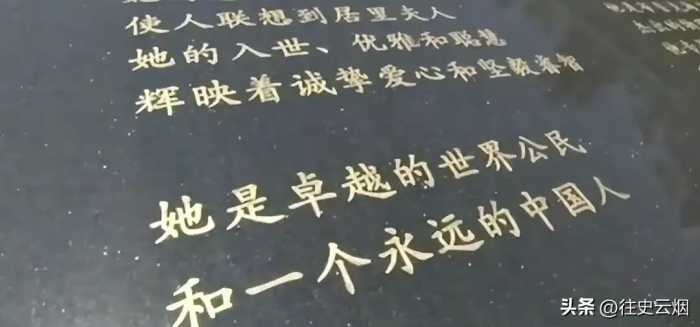 使人联想到居里夫人
她的入世、优雅和聪慧
辉映着诚挚爱心和坚毅睿智
她是卓越的世界公民
和一个永远的中国人
头条 @往史云烟